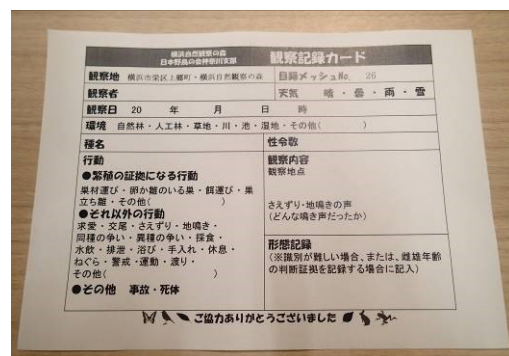 横浜自然観察の森
日本野鳥の会神奈川支部
観察記録カード
観察地 横浜市栄区上郷町・横浜自然観察の森
目録メッシュNo. 26
観察者
天気 晴・曇・雨・雪
観察日 20 年 月 日 時
環境 自然林・人工林・草地・川・池・湿地・その他( )
種名
性令数
行動
●繁殖の証拠になる行動
巣材運び・卵か雛のいる巣・餌運び・巣
立ち雛・その他( )
●それ以外の行動
求愛・交尾・さえずり・地鳴き・
同種の争い・異種の争い・採食・
水飲・排泄・浴び・手入れ・休息・
ねぐら・警戒・運動・渡り・
その他( )
●その他 事故・死体
観察内容
観察地点
さえずり・地鳴きの声
(どんな鳴き声だったか)
形態記録
(※識別が難しい場合、または、雌雄年齢
の判断証拠を記録する場合に記入)
ご協力ありがとうございました